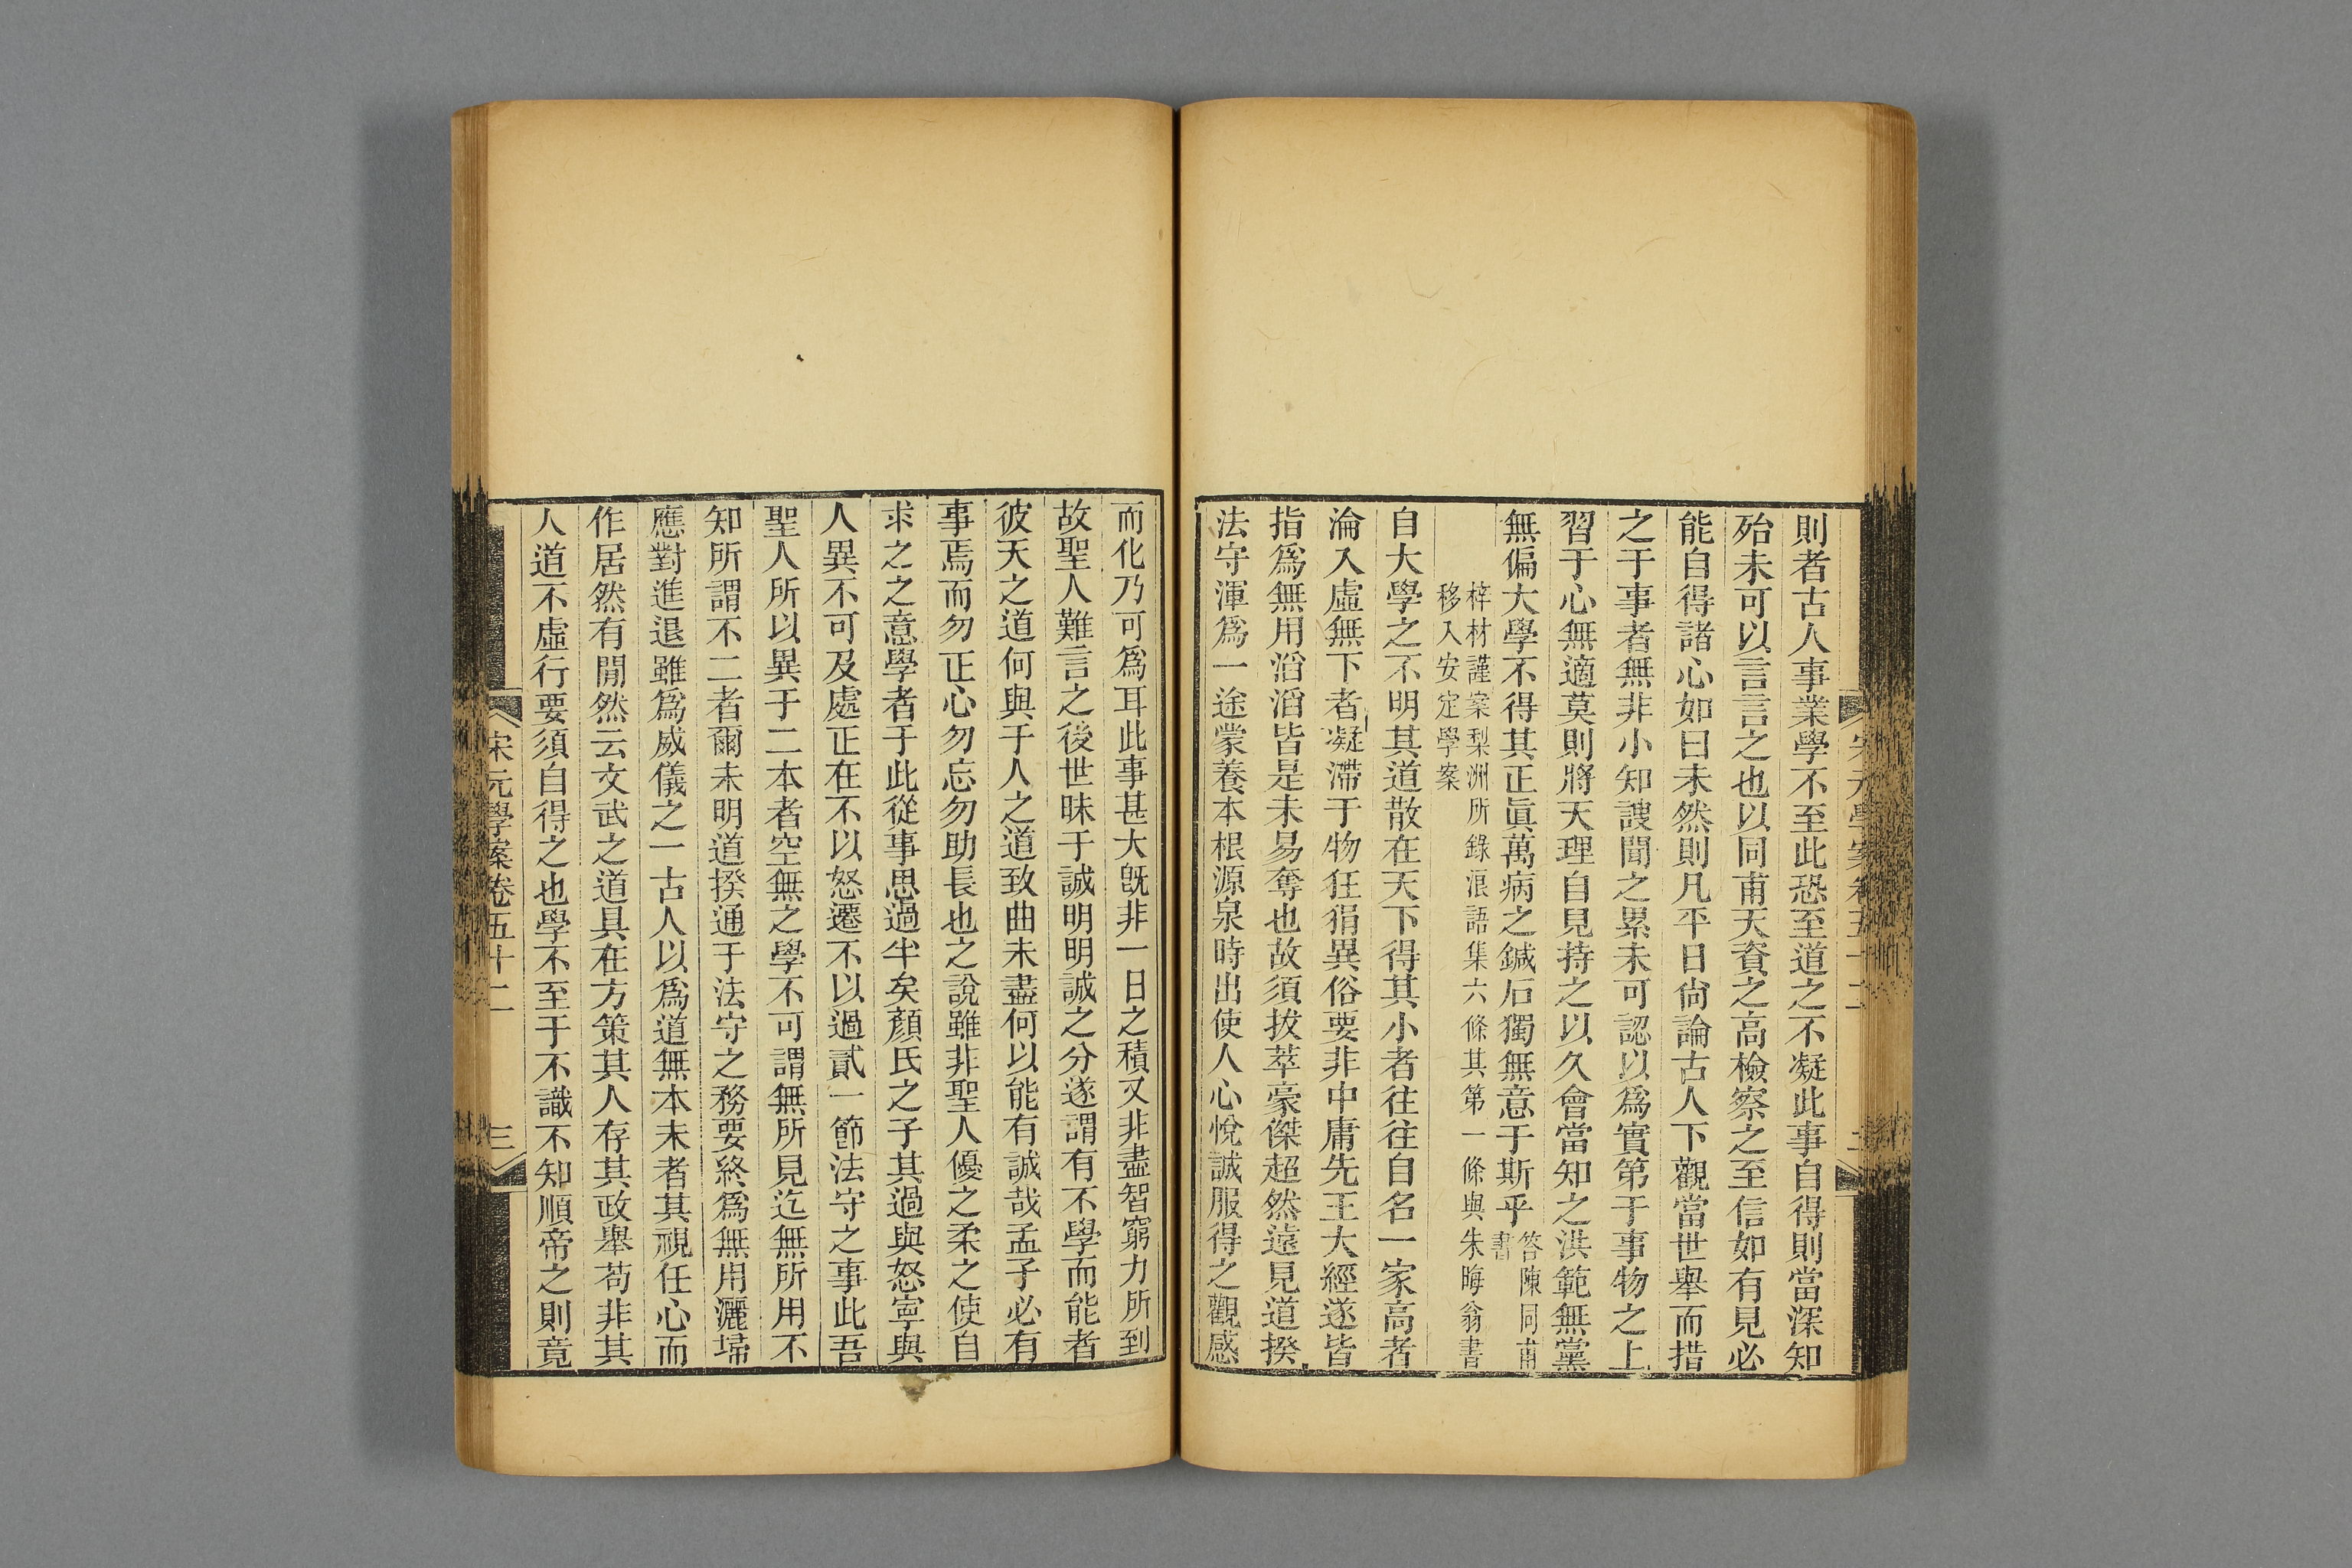 則者古人事業學不至此恐至道之不凝此事自得則當深知
殆未可以言言之也以同甫天資之高檢察之至信如有見必
能自得諸心如曰未然則凡平日尙論古人下觀當世舉而措
之于事者無非小知謏聞之累未可認以爲實第于事物之上
習于心無適莫則將天理自見持之以久會當知之洪範無黨
無偏大學不得其正眞萬病之鍼石獨無意于斯乎答陳同甫書
梓材謹案梨洲所錄浪語集六條其第一條與朱晦翁書
移入安定學案
自大學之不明其道散在天下得其小者往往自名一家高者
淪入虛無下者凝滯于物狂狷異俗要非中庸先王大經遂皆
指爲無用滔滔皆是未易奪也故須拔萃豪傑超然遠見道揆
法守渾爲一途蒙養本根源泉時出使人心悅誠服得之觀感
而化乃可爲耳此事甚大旣非一日之積又非盡智窮力所到
故聖人難言之後世昧于誠明明誠之分遂謂有不學而能者
彼天之道何與于人之道致曲未盡何以能有誠哉孟子必有
事焉而勿正心勿忘勿助長也之說雖非聖人優之柔之使自
求之之意學者于此從事思過半矣顏氏之子其過與怒寜與
人異不可及處正在不以怒遷不以過貳一節法守之事此吾
聖人所以異于二本者空無之學不可謂無所見迄無所用不
知所謂不二者爾未明道揆通于法守之務要終爲無用灑埽
應對進退雖爲威儀之一古人以爲道無本末者其視任心而
作居然有閒然云文武之道具在方策其人存其政舉苟非其
人道不虛行要須自得之也學不至于不識不知順帝之則竟
宋元學案卷五十二
三